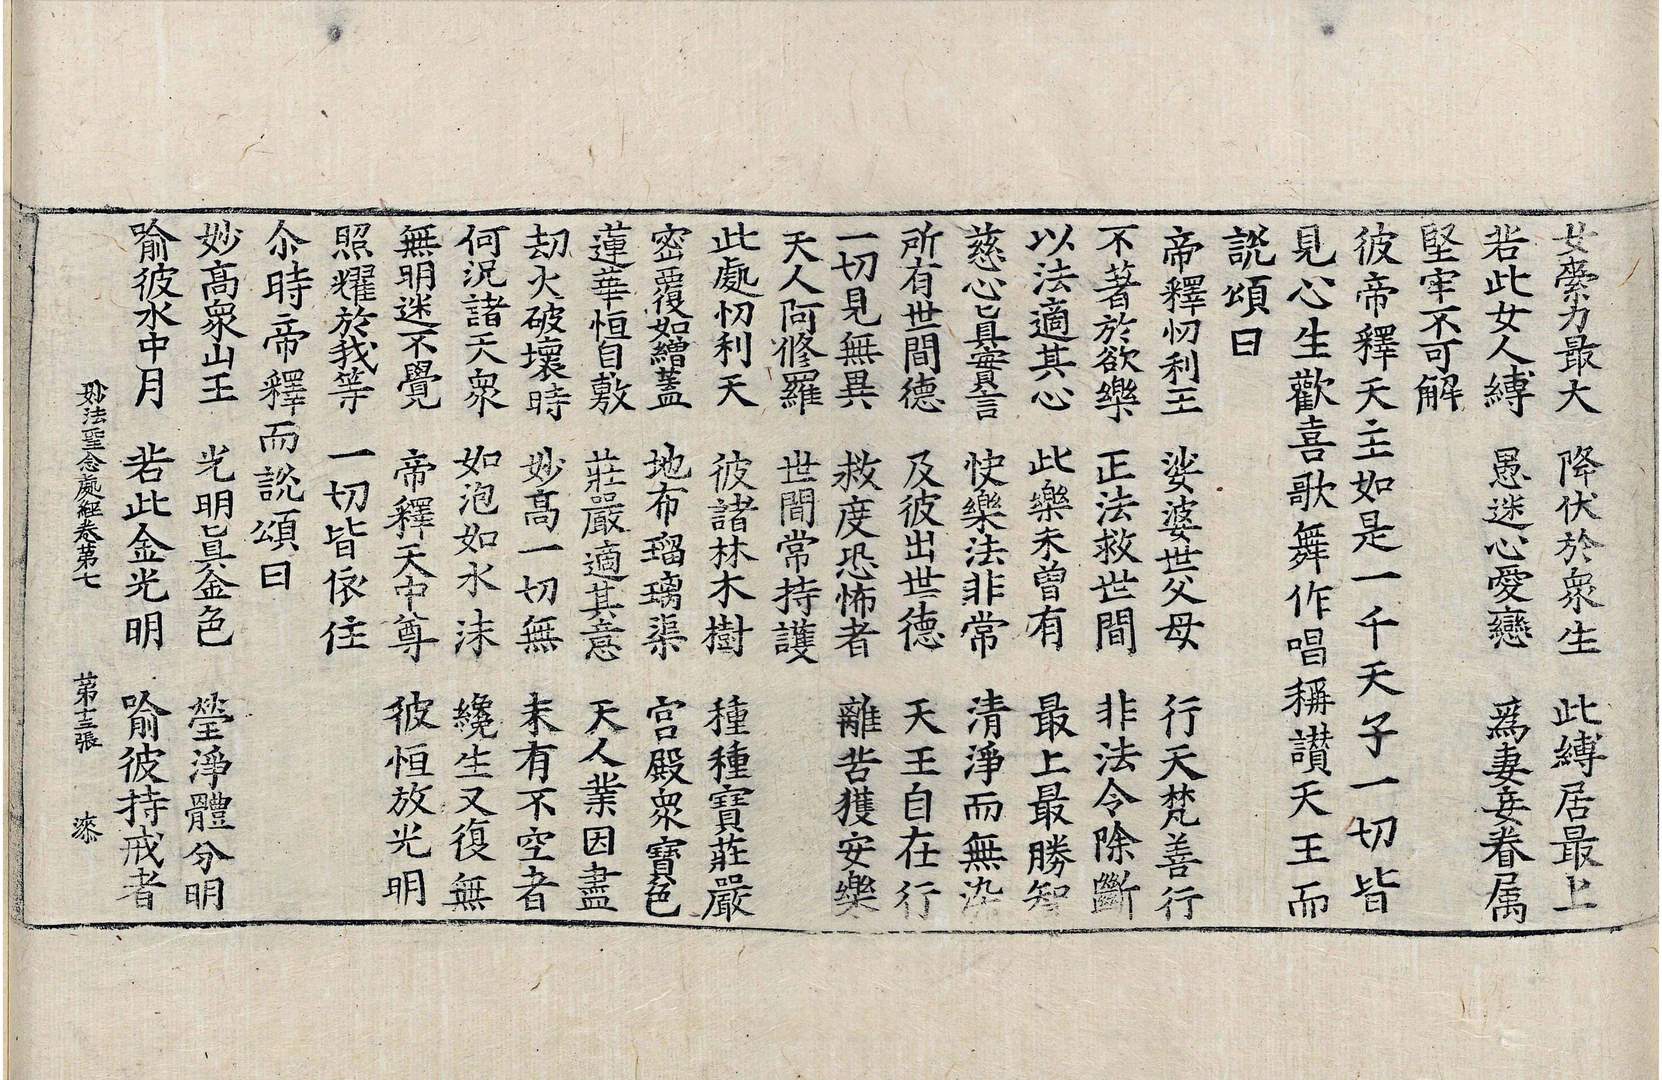 女索力最大　降伏於衆生　此縛居最上
若此女人縛　愚迷心愛戀　爲妻妾眷属
堅牢不可解
彼帝釋天主如是一千天子一切皆
見心生歡喜歌舞作唱稱讃天王而
説頌曰
帝釋忉利王　娑婆世父母　行天梵善行
不著於欲樂　正法救世間　非法令除斷
以法適其心　此樂未曾有　最上最勝智
慈心真實言　快樂法非常　清淨而無染
所有世間德　及彼出世德　天王自在行
一切見無異　救度恐怖者　離苦獲安樂
天人阿修羅　世間常持護
此處忉利天　彼諸林木樹　種種寶莊嚴
密覆如繒蓋　地布瑠璃渠　宮殿衆寶色
蓮華恒自敷　莊嚴適其意　天人業因盡
劫火破壞時　妙高一切無　未有不空者
何況諸天衆　如泡如水沫　纔生又復無
無明迷不覺　帝釋天中尊　彼恒放光明
照耀於我等　一切皆依住
尒時帝釋而説頌曰
妙高衆山王　光明真金色　瑩淨體分明
喻彼水中月　若此金光明　喻彼持戒者
妙法聖念處經卷第七　第十三張　漆